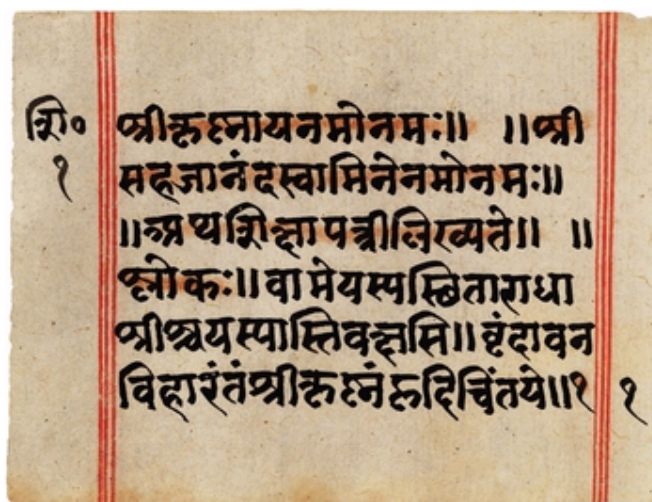 शि॰ श्रीकृष्णायनमोनमः॥ ॥श्री
१ सहजानंदस्वामिनेनमोनमः॥
॥अथशिक्षापत्रीलिख्यते॥ ॥
श्लोकः॥वामेयस्यस्थिताराधा
श्रीश्चयस्यास्तिवक्षसि॥वृंदावन
विहारंतंश्रीकृष्णंहृदिचिंतये॥१ १